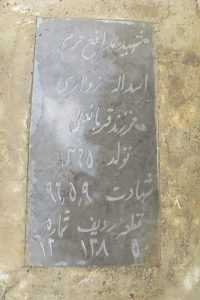 شهید مدافع حرم
اسداله زواری
فرزند قربانعلی
تولد ۱۳۶۵
شهادت ۹۶٫۵٫۹
قطعه ردیف شماره
۱۲ ۱۳۸ ۵
۸